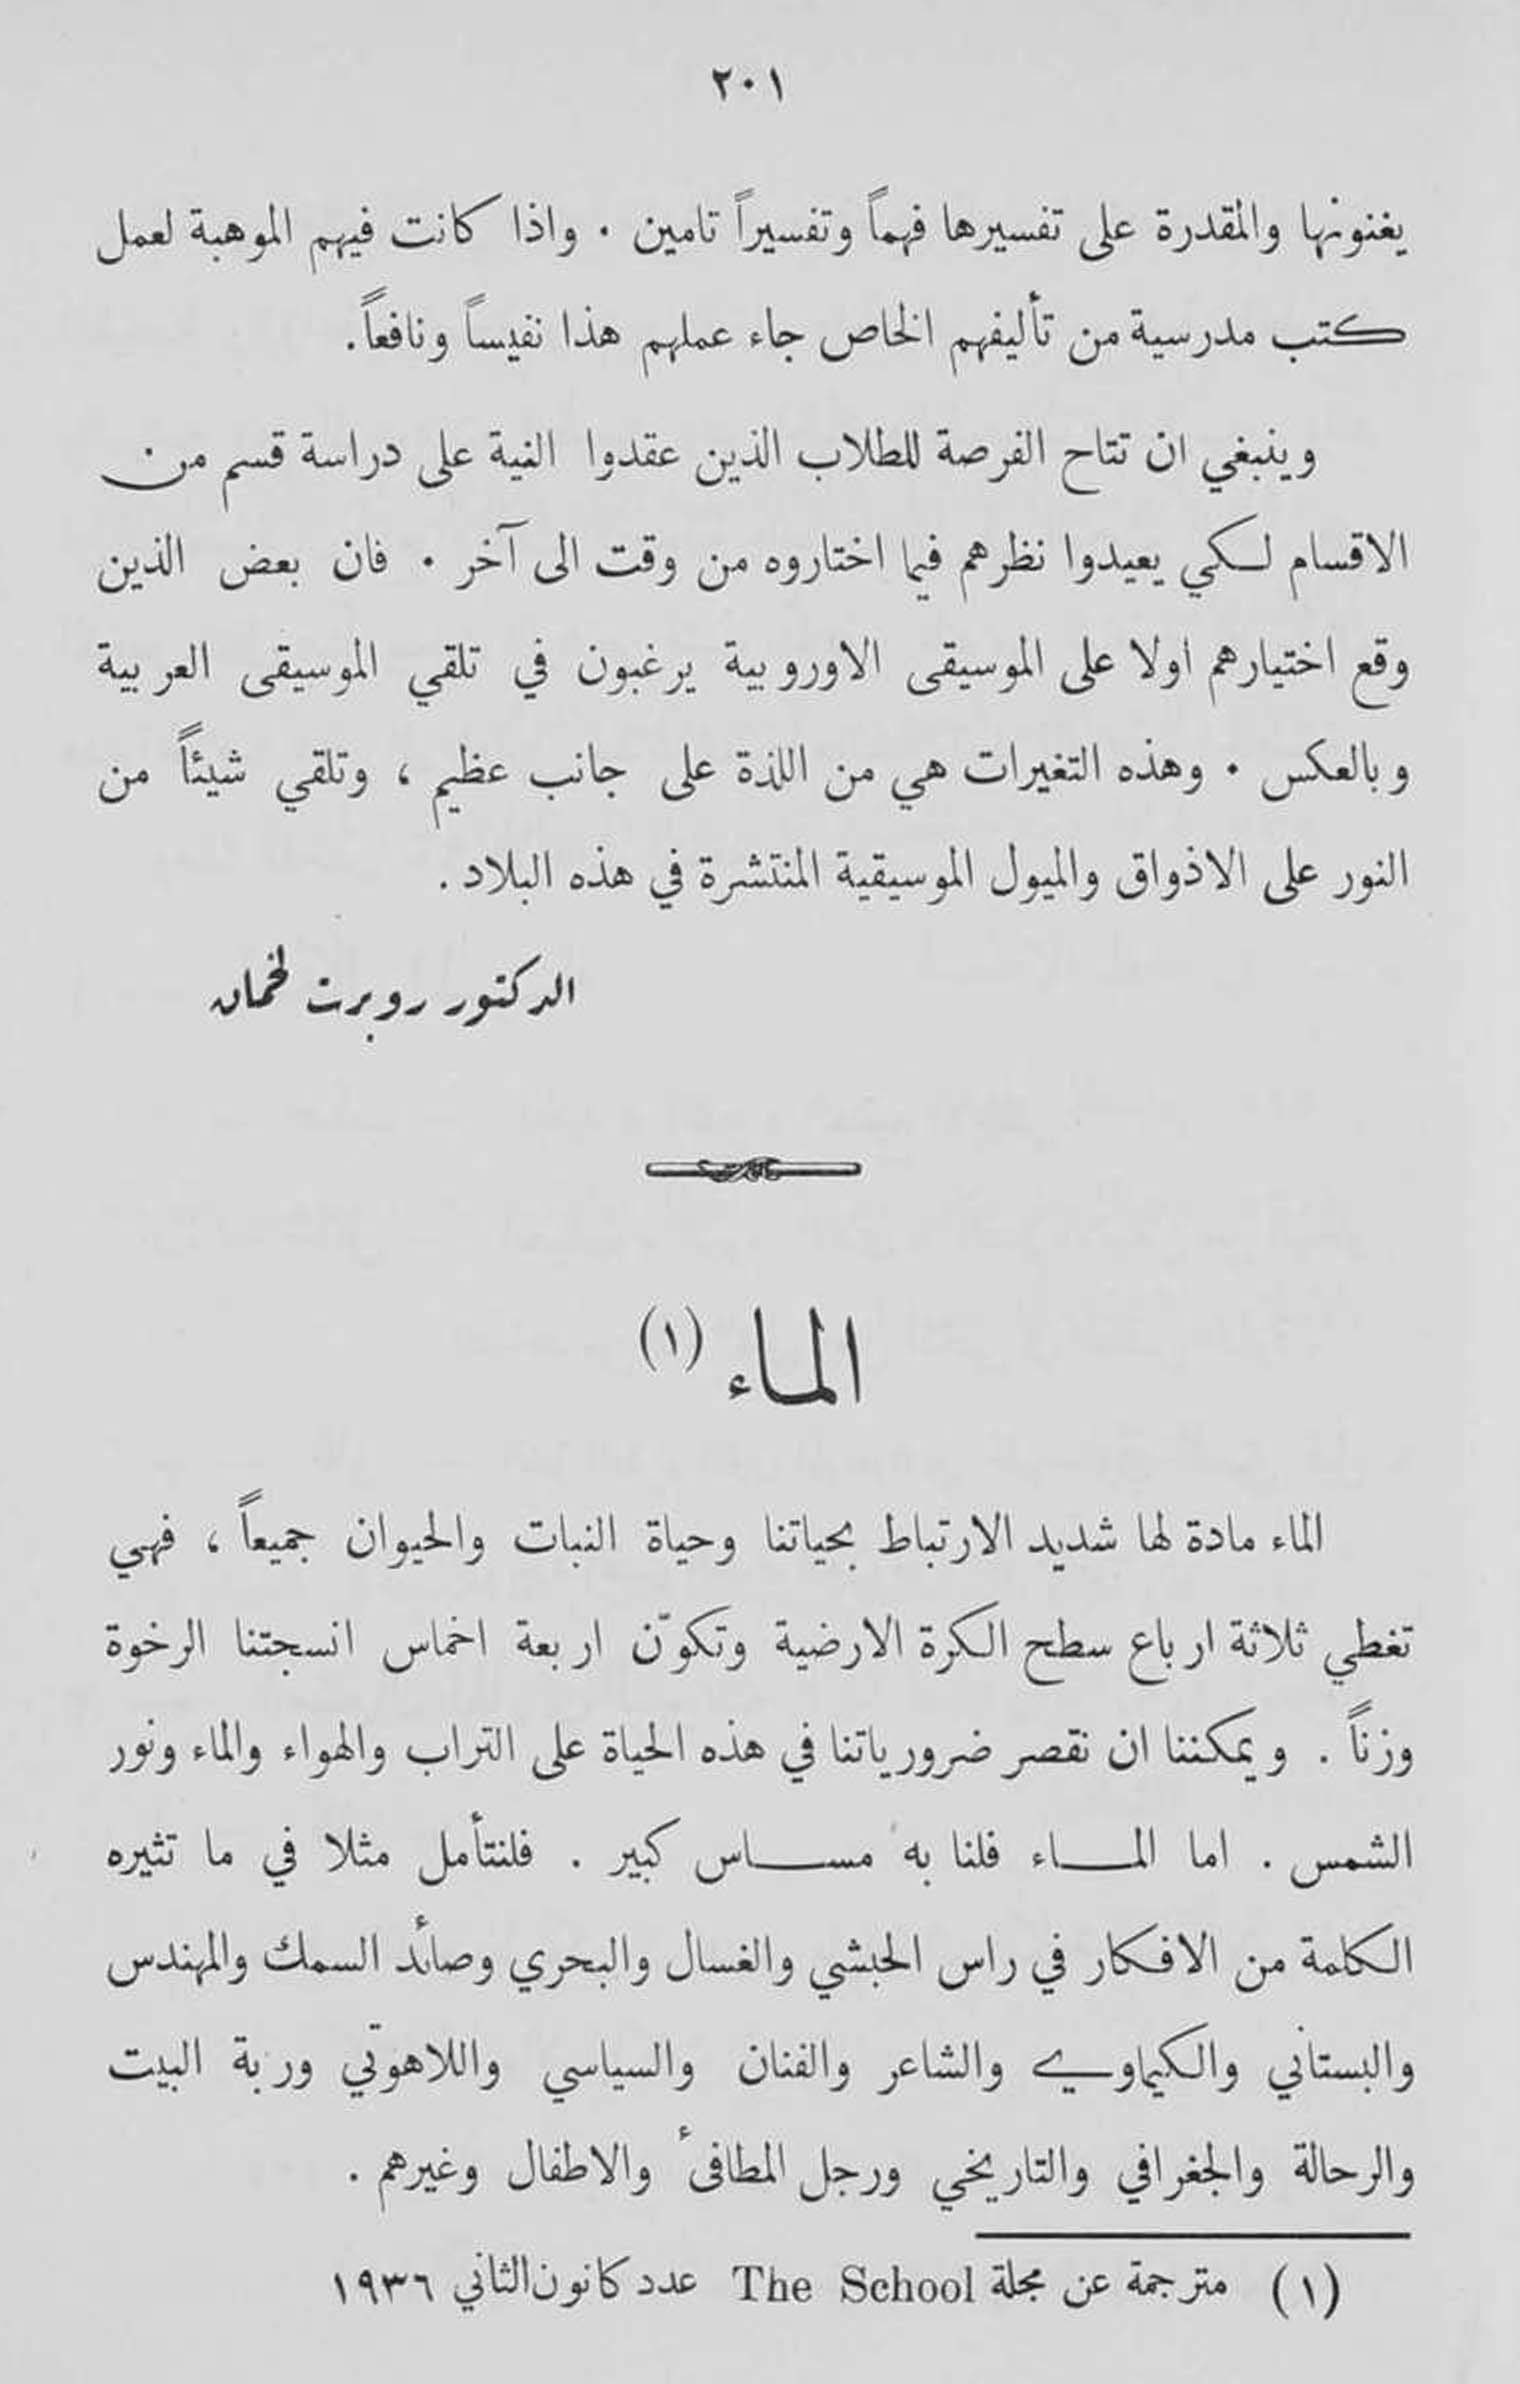 ٢٠١
يغنونها والمقدرة على تفسيرها فهماً وتفسيراً تامين . واذا كانت فيهم الموهبة لعمل
كتب مدرسية من تأليفهم الخاص جاء عملهم هذا نفيساً ونافعاً.
وينبغي ان تتاح الفرصة للطلاب الذين عقدوا النية على دراسة قسم من
الاقسام لكي يعيدوا نظرهم فيما اختاروه من وقت الى آخر . فان بعض الذين
وقع اختيارهم اولا على الموسيقى الاوروبية يرغبون في تلقي الموسيقى العربية
وبالعكس . وهذه التغيرات هي من اللذة على جانب عظيم ، وتلقي شيئاً من
النور على الاذواق والميول الموسيقية المنتشرة في هذه البلاد .
الدكتور روبرت لخمان
الماء (١)
الماء مادة لها شديد الارتباط بحياتنا وحياة النبات والحيوان جميعاً ، فهي
تغطي ثلاثة ارباع سطح الكرة الارضية وتكوّن اربعة اخماس انسجتنا الرخوة
وزناً . ويمكننا ان نقصر ضرورياتنا في هذه الحياة على التراب والهواء والماء ونور
الشمس . اما المـــاء فلنا به مســـاس كبير . فلنتأمل مثلا في ما تثيره
الكلمة من الافكار في راس الحبشي والغسال والبحري وصائد السمك والمهندس
والبستاني والكيماوي والشاعر والفنان والسياسي واللاهوتي وربة البيت
والرحالة والجغرافي والتاريخي ورجل المطافئ والاطفال وغيرهم .
(١) مترجمة عن مجلة The School عدد كانون الثاني ١٩٣٦